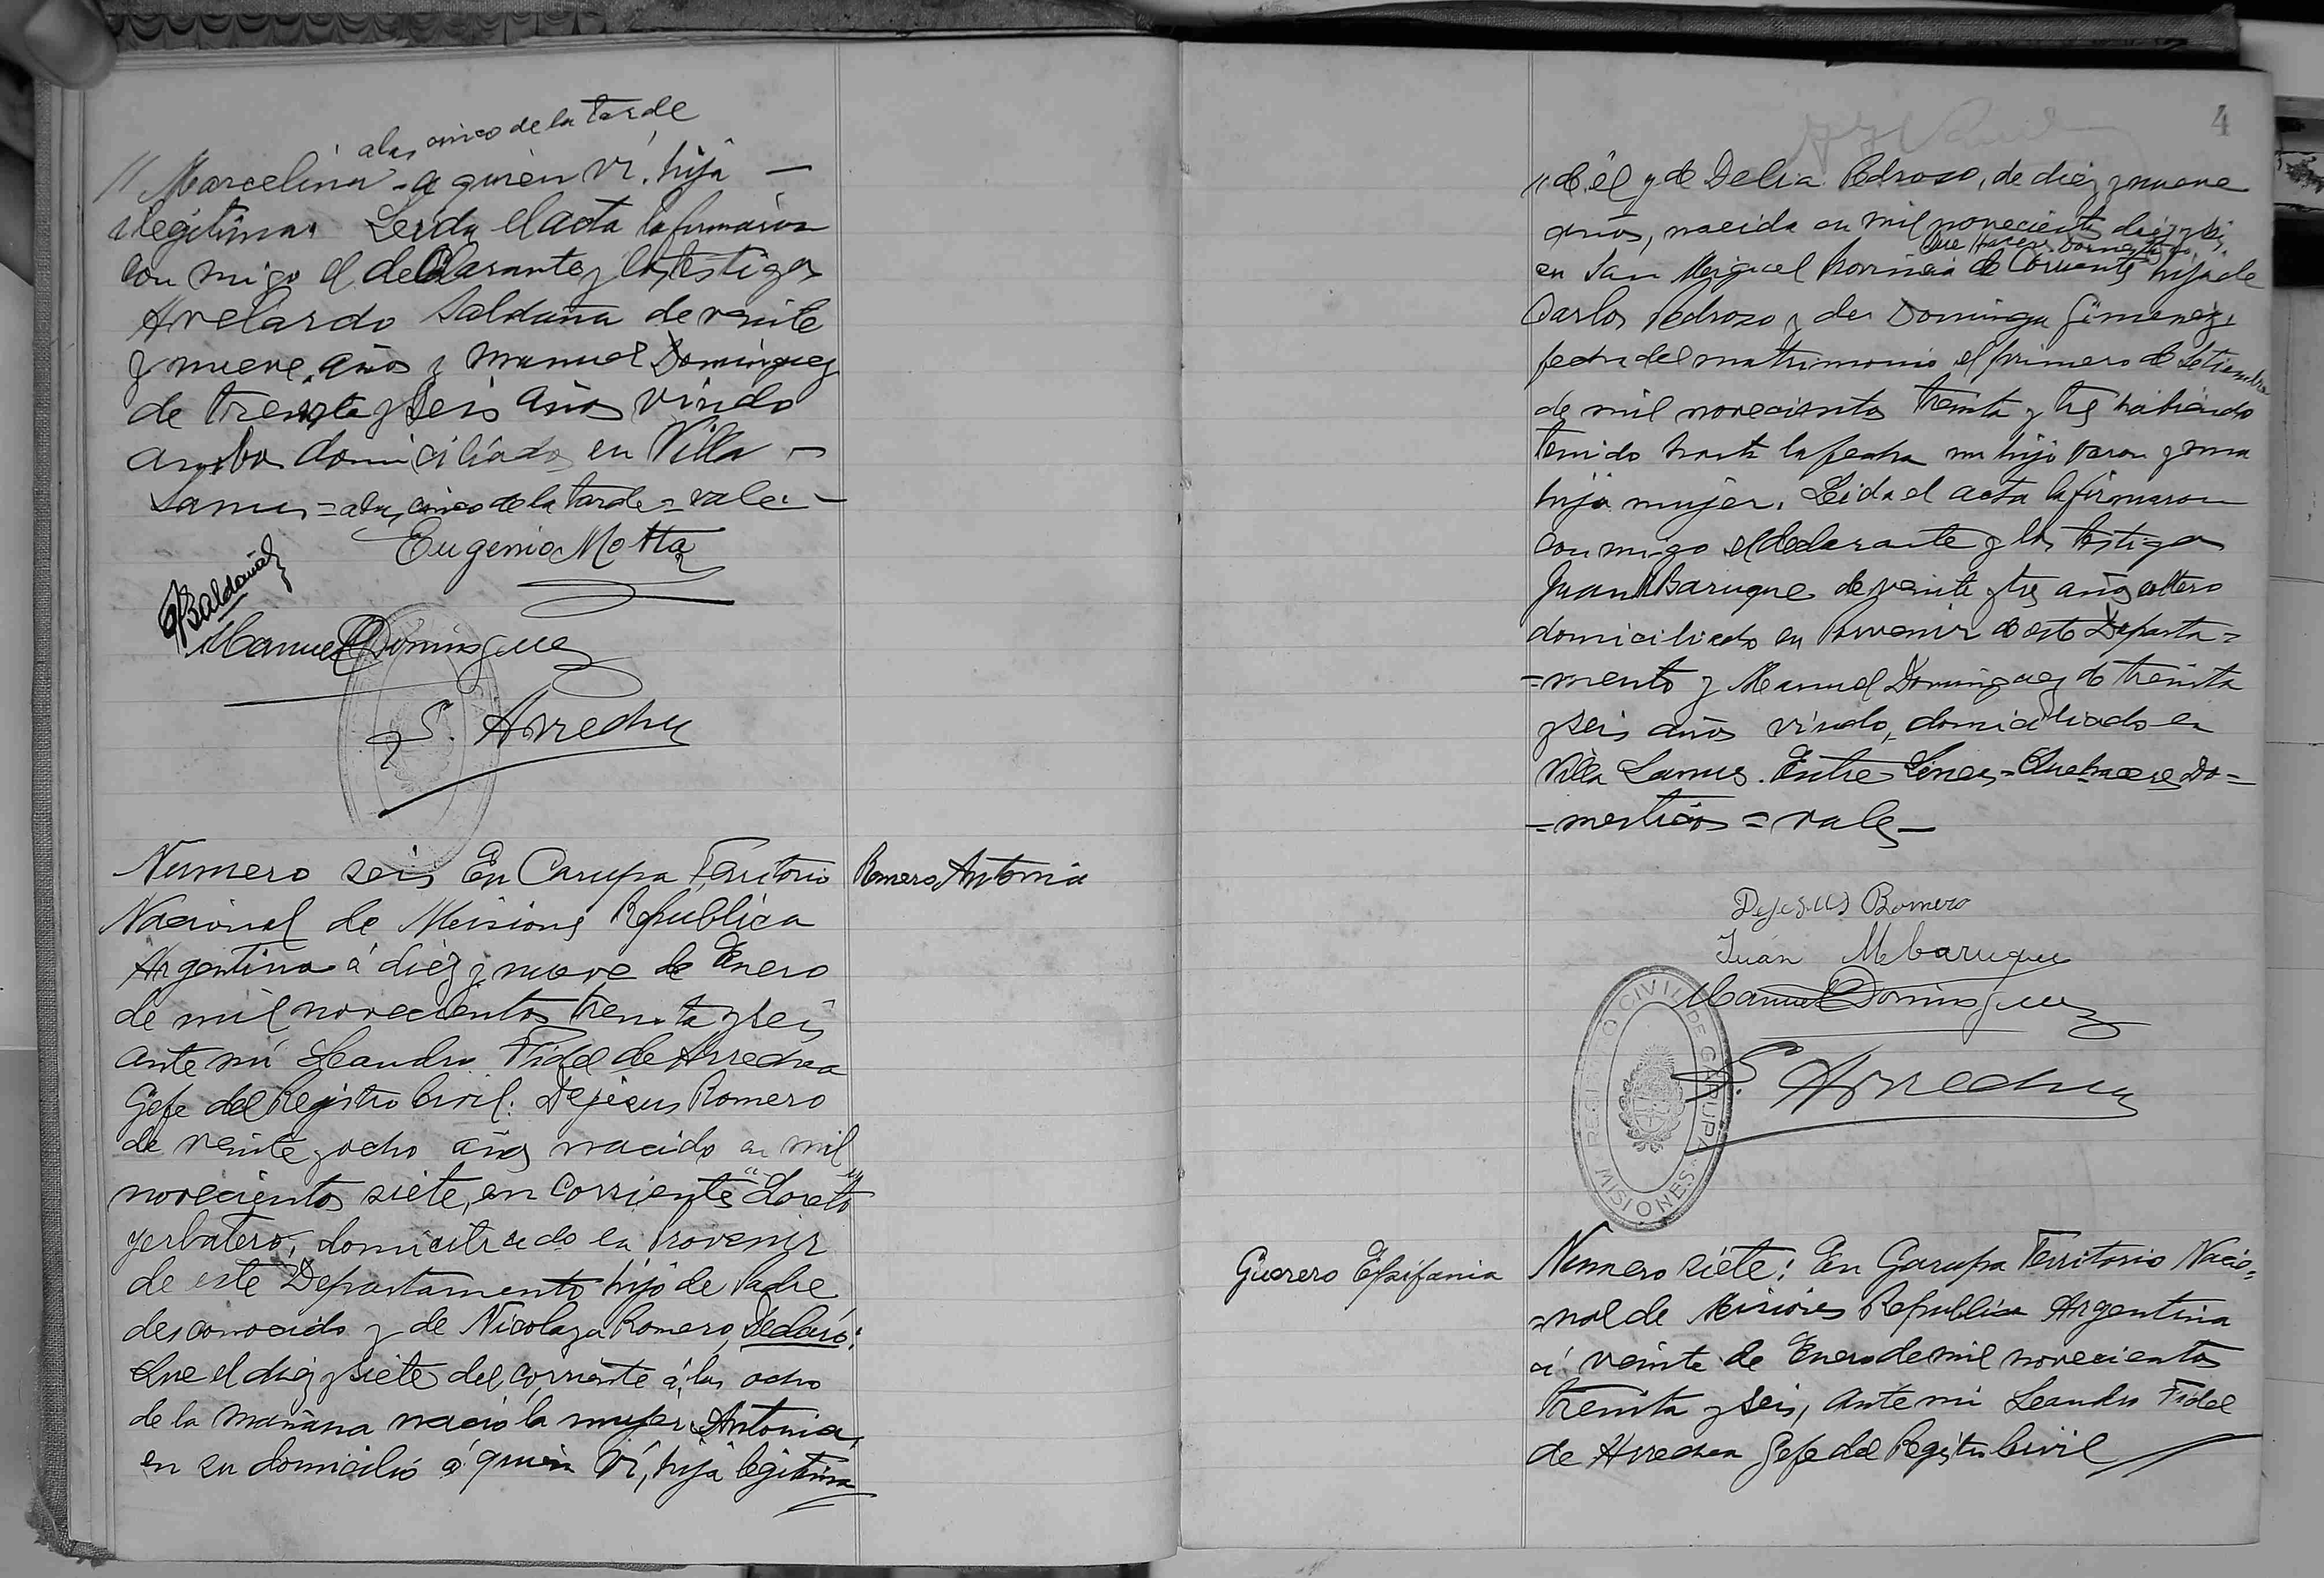 a las cinco de la tarde
// Marcelina - a quien ví. hija —
ilegitima. Leida el acta la firmaron
con migo el declarante y los testigos
Avelardo Saldaña de veinte
y nueve años y Manuel Dominguez
de treinta y seis años viudo
ambos domiciliados en Villa —
Lanus = a las cinco de la tarde = vale —
Eugenio Motta
Manuel Dominguez
L. Arrechea
Numero seis En Garupa Territorio
Romero Antonia
Nacional de Misiones Republica
Argentina á diez y nueve de Enero
de mil novecientos treinta y seis
ante mí Leandro Fidel de Arrechea
Gefe del Registro Civil: Dejesus Romero
de veinte y ocho años nacido en mil
novecientos siete, en Corrientes "Loreto"
yerbatero, domiciliado en Provenir
de este Departamento hijo de Padre
desconocido y de Nicolaza Romero, Declaró:
Que el diez y siete del corriente á las ocho
de la mañana nació la mujer Antonia,
en su domicilio á quien ví, hija legitima
4
// de él y de Delia Pedrozo, de diez y nueve
años, nacida en mil novecientos diez y seis,
Que Haceres Domesticos,
en San Miguel Provincia de Corrientes hija de
Carlos Pedrozo y de Dominga Gimenez,
fecha del matrimonio el primero de Setiembre
de mil novecientos treinta y tres habiendo
tenido hasta la fecha un hijo varon y una
hija mujer. Leida el acta la firmaron
con migo el declarante y los testigos
Juan M Baruque de veinte y tres años soltero
domiciliado en Provenir de este Departa=
=mento y Manuel Dominguez de treinta
y seis años viudo, domiciliado en
Villa Lanus. Entre Lineas = Quehaceres Do=
=mesticos = vale —
Dejesus Romero
Juán M baruque
Manuel Dominguez
L. Arrechea
REGISTRO CIVIL DE GARUPA
MISIONES
Guerero Epifania
Numero siete: En Garupa Territorio Nacio=
=nal de Misiones Republica Argentina
á veinte de Enero de mil novecientos
treinta y seis, ante mi Leandro Fidel
de Arrechea Gefe del Registro Civil //